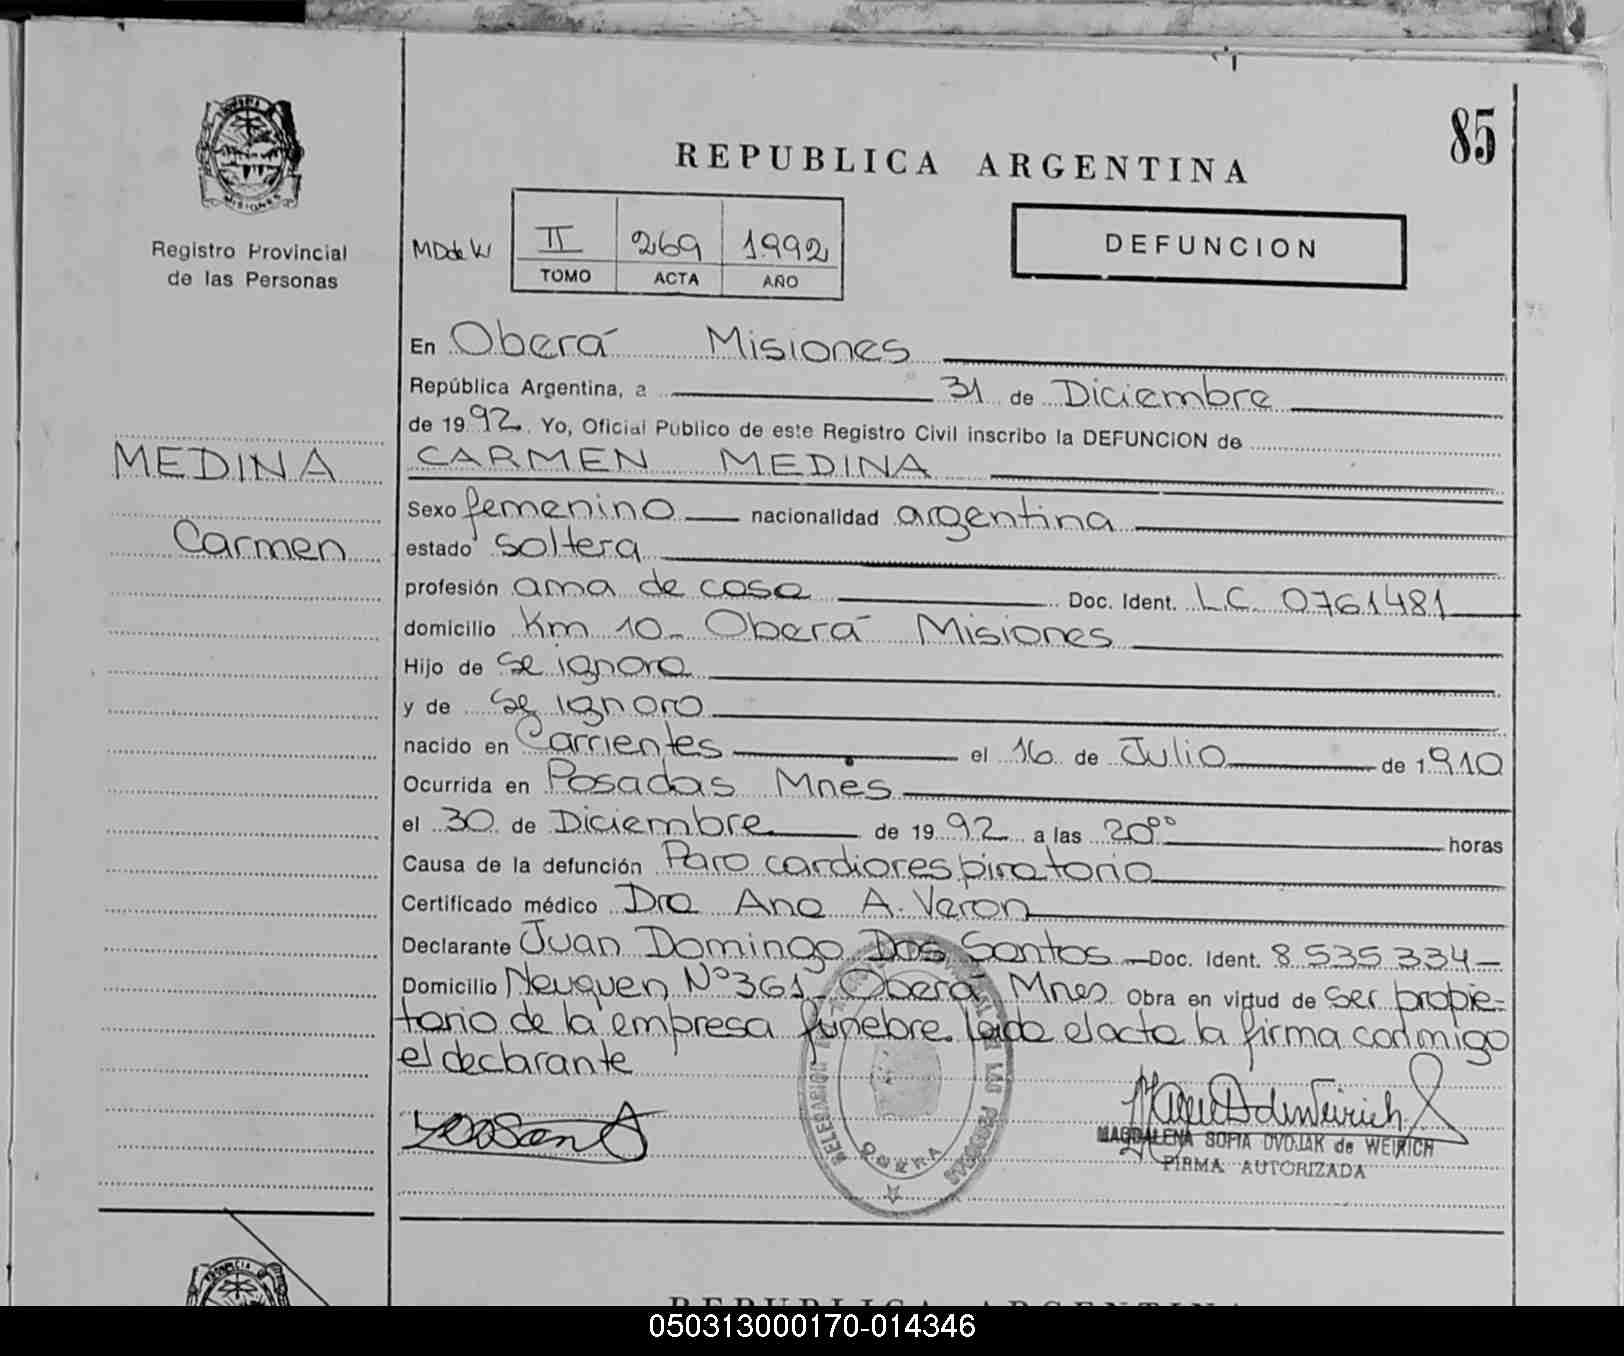 85
REPUBLICA ARGENTINA
MISIONES
Registro Provincial
de las Personas
MDdeW
II 269 1992
TOMO ACTA AÑO
DEFUNCION
MEDINA
Carmen
En Oberá Misiones
República Argentina, a 31 de Diciembre
de 1992. Yo, Oficial Público de este Registro Civil inscribo la DEFUNCION de
CARMEN MEDINA
Sexo femenino nacionalidad argentina
estado soltera
profesión ama de casa Doc. Ident. LC 0761481
domicilio Km 10 - Oberá Misiones
Hijo de se ignora
y de se ignora
nacido en Corrientes el 16 de Julio de 1910
Ocurrida en Posadas Mnes
el 30 de Diciembre de 1992 a las 20⁰⁰ horas
Causa de la defunción Paro cardiorespiratorio
Certificado médico Dra Ana A. Veron
Declarante Juan Domingo Dos Santos - Doc. Ident. 8535334-
Domicilio Neuquen Nº361 - Oberá Mnes Obra en virtud de ser propie-
tario de la empresa funebre. Leida el acta la firma conmigo
el declarante
OBERA
MAGDALENA SOFIA DVOJAK de WEIRICH
FIRMA AUTORIZADA
PROVINCIA DE
REPUBLICA ARGENTINA
050313000170-014346